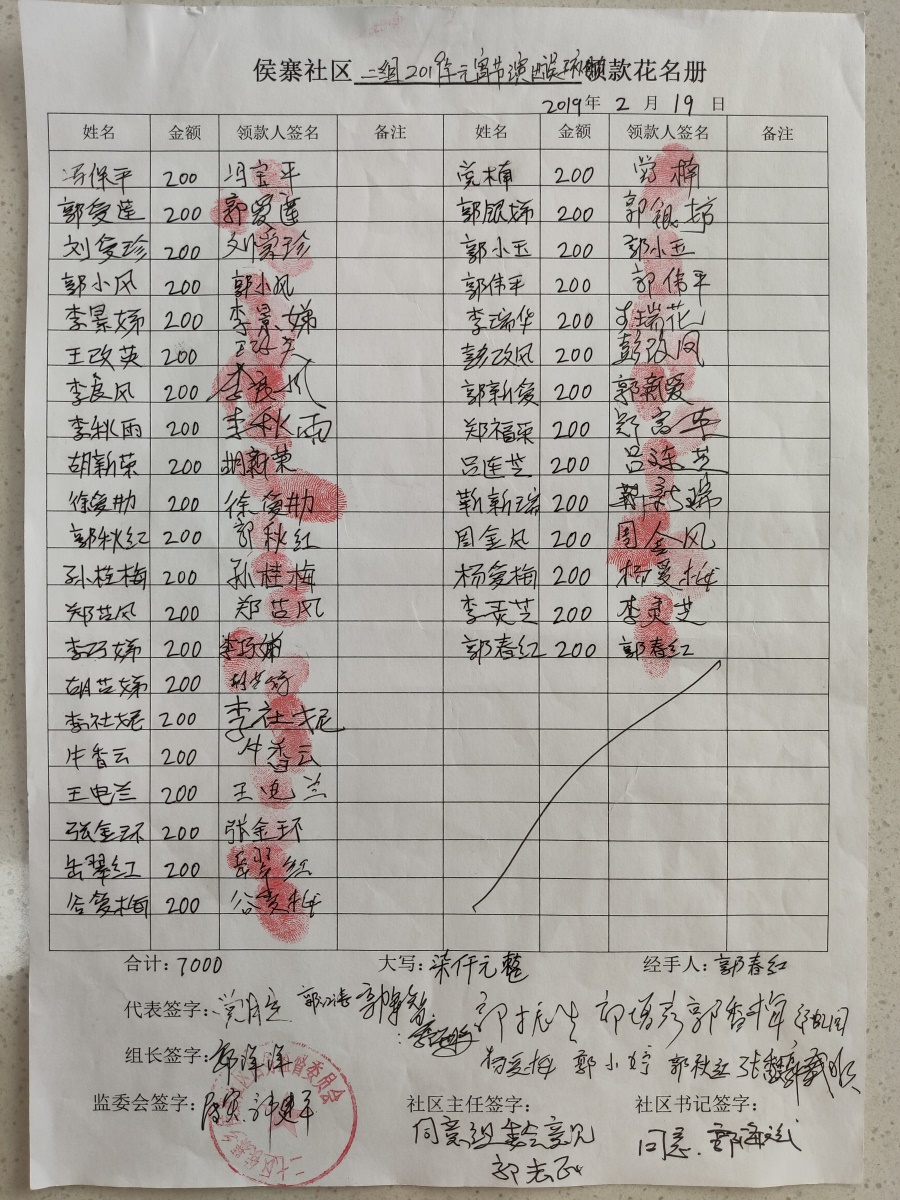 侯寨社区二组2019年元宵节演出误工补领款花名册
2019年 2 月 19 日
姓名 金额 领款人签名 备注 姓名 金额 领款人签名 备注
冯保平 200 冯宝平 党楠 200 党楠
郭爱莲 200 郭爱莲 郭银娣 200 郭银婷
刘爱珍 200 刘爱珍 郭小玉 200 郭小玉
郭小风 200 郭小风 郭伟平 200 郭伟平
李景娣 200 李景娣 李瑞华 200 李瑞花
王改英 200 王改英 彭改风 200 彭改凤
李良风 200 李良风 郭新爱 200 郭新爱
李秋雨 200 李秋雨 郑福荣 200 郑富荣
胡新荣 200 胡新荣 吕连芝 200 吕莲芝
徐爱勤 200 徐爱勤 靳新瑞 200 靳新瑞
郭秋红 200 郭秋红 周金风 200 周金风
孙桂梅 200 孙桂梅 杨爱梅 200 杨爱梅
郑苗风 200 郑苗风 李灵芝 200 李灵芝
李巧娣 200 李巧娣 郭春红 200 郭春红
胡苗娣 200
李社妮 200 李社妮
牛香云 200 牛香云
王电兰 200 王电兰
张金环 200 张金环
岳翠红 200 岳翠红
谷爱梅 200 谷爱梅
合计：7000 大写：柒仟元整 经手人：郭春红
代表签字：
组长签字：
杨爱梅 郭小婷 郭秋红
监委会签字： 社区主任签字： 社区书记签字：
同意组委会意见 同意
郭志